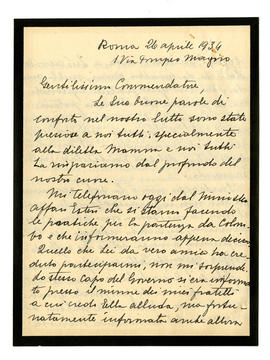 Roma 26 aprile 1934
Gentilissimo Commendatore,
Le Sue buone parole di
conforto nel nostro lutto sono state
preziose a noi tutti, specialmente
alla diletta Mamma e noi tutti
La ringraziamo dal profondo del
nostro cuore.
Mi telefonano oggi dal Ministero
Affari Esteri che si stanno facendo
le pratiche per la partenza da Colom
bo e che informeranno appena
Quello che Lei da vero amico ha cre
duto parteciparmi, non mi sorprende.
Lo stesso Capo del Governo si era informato
presso il minore dei miei fratelli
a cui credo Ella alluda, ma fortu
natamente informata anche allora